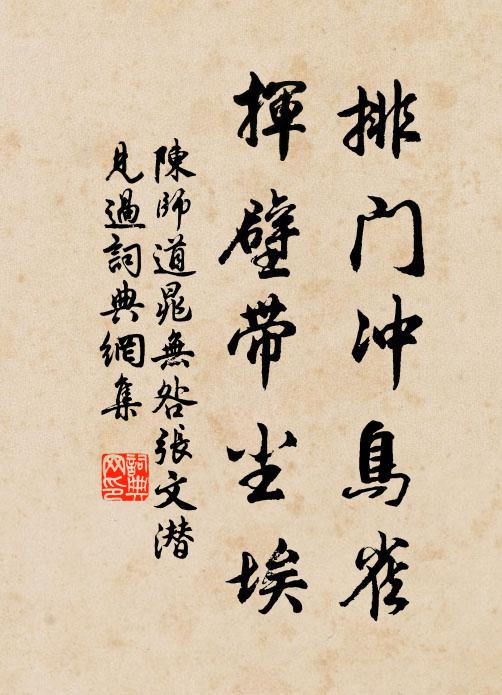 排门冲鳥雀
揮壁带尘埃
陳師道晁無咎張文潜
見過詞典網集
詞典
网印